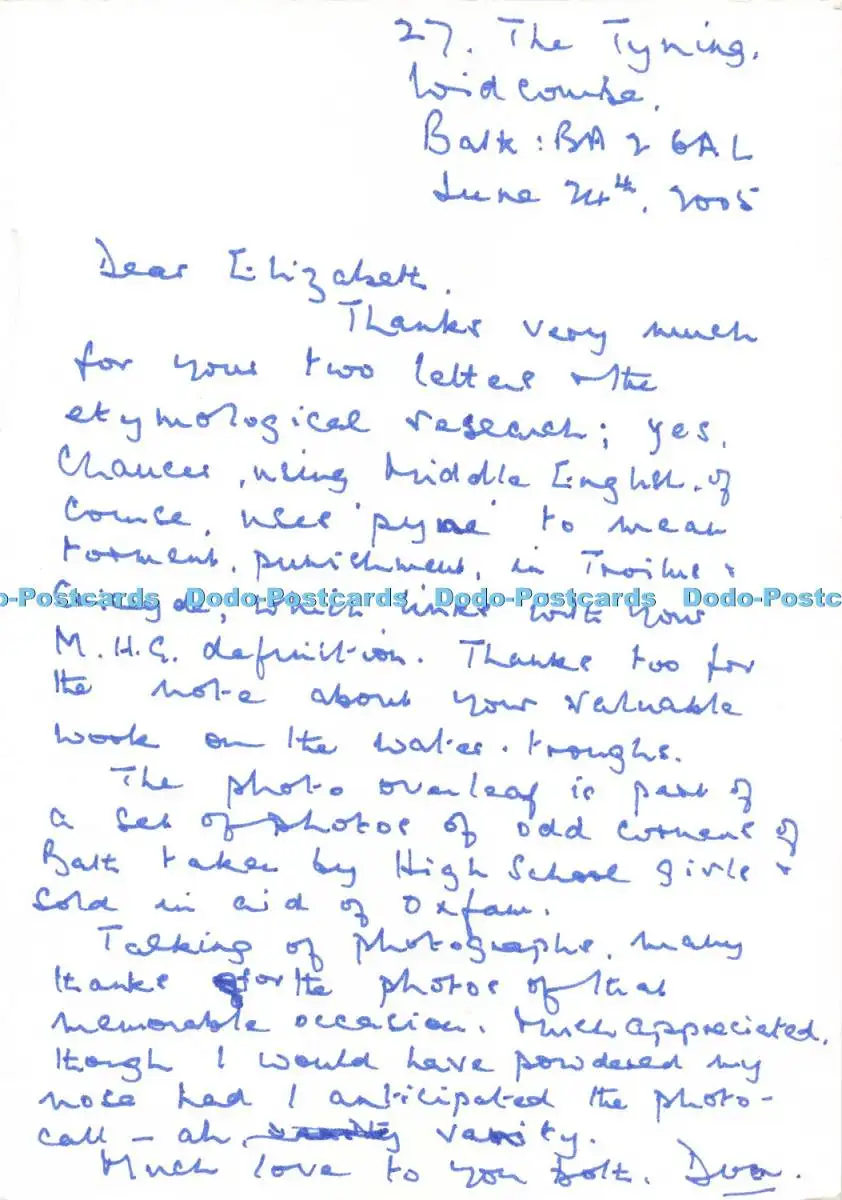 27. The Tyning,
Widcombe,
Bath : BA 2 6AL
June 24th, 2005
Dear Elizabeth,
Thanks very much
for your two letters & the
etymological research; yes,
Chaucer, using Middle English, of
course, uses 'pyne' to mean
torment, punishment, in Troilus &
Criseyde, which links with your
Dodo-Postcards Dodo-Postcards Dodo-Postcards Dodo-Postcards
M.H.G. definition. Thanks too for
the note about your valuable
work on the water-troughs.
The photo overleaf is part of
a set of photos of odd corners of
Bath taken by High School girls &
sold in aid of Oxfam.
Talking of photographs, many
thanks for the photos of that
memorable occasion. Much appreciated,
though I would have powdered my
nose had I anticipated the photo-
call – ah, vanity.
Much love to you both,